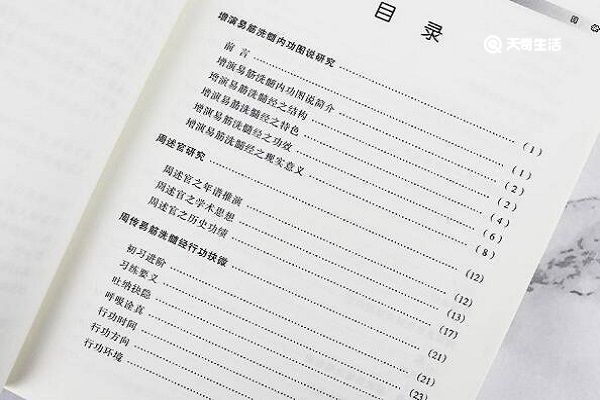 天奇生活
目录
增演易筋洗髓内功图说研究 ……………… (1)
前言 ……………… (1)
增演易筋洗髓内功图说简介 ……………… (2)
增演易筋洗髓经之结构 ……………… (2)
增演易筋洗髓经之特色 ……………… (4)
增演易筋洗髓经之功效 ……………… (6)
增演易筋洗髓经之现实意义 ……………… (8)
周述官研究 ……………… (12)
周述官之年谱推演 ……………… (12)
周述官之学术思想 ……………… (13)
周述官之历史功绩 ……………… (17)
周传易筋洗髓经行功抉微 ……………… (21)
初习进阶 ……………… (21)
习练要义 ……………… (23)
吐纳抉隐
呼吸诠真
行功时间
行功方向
行功环境